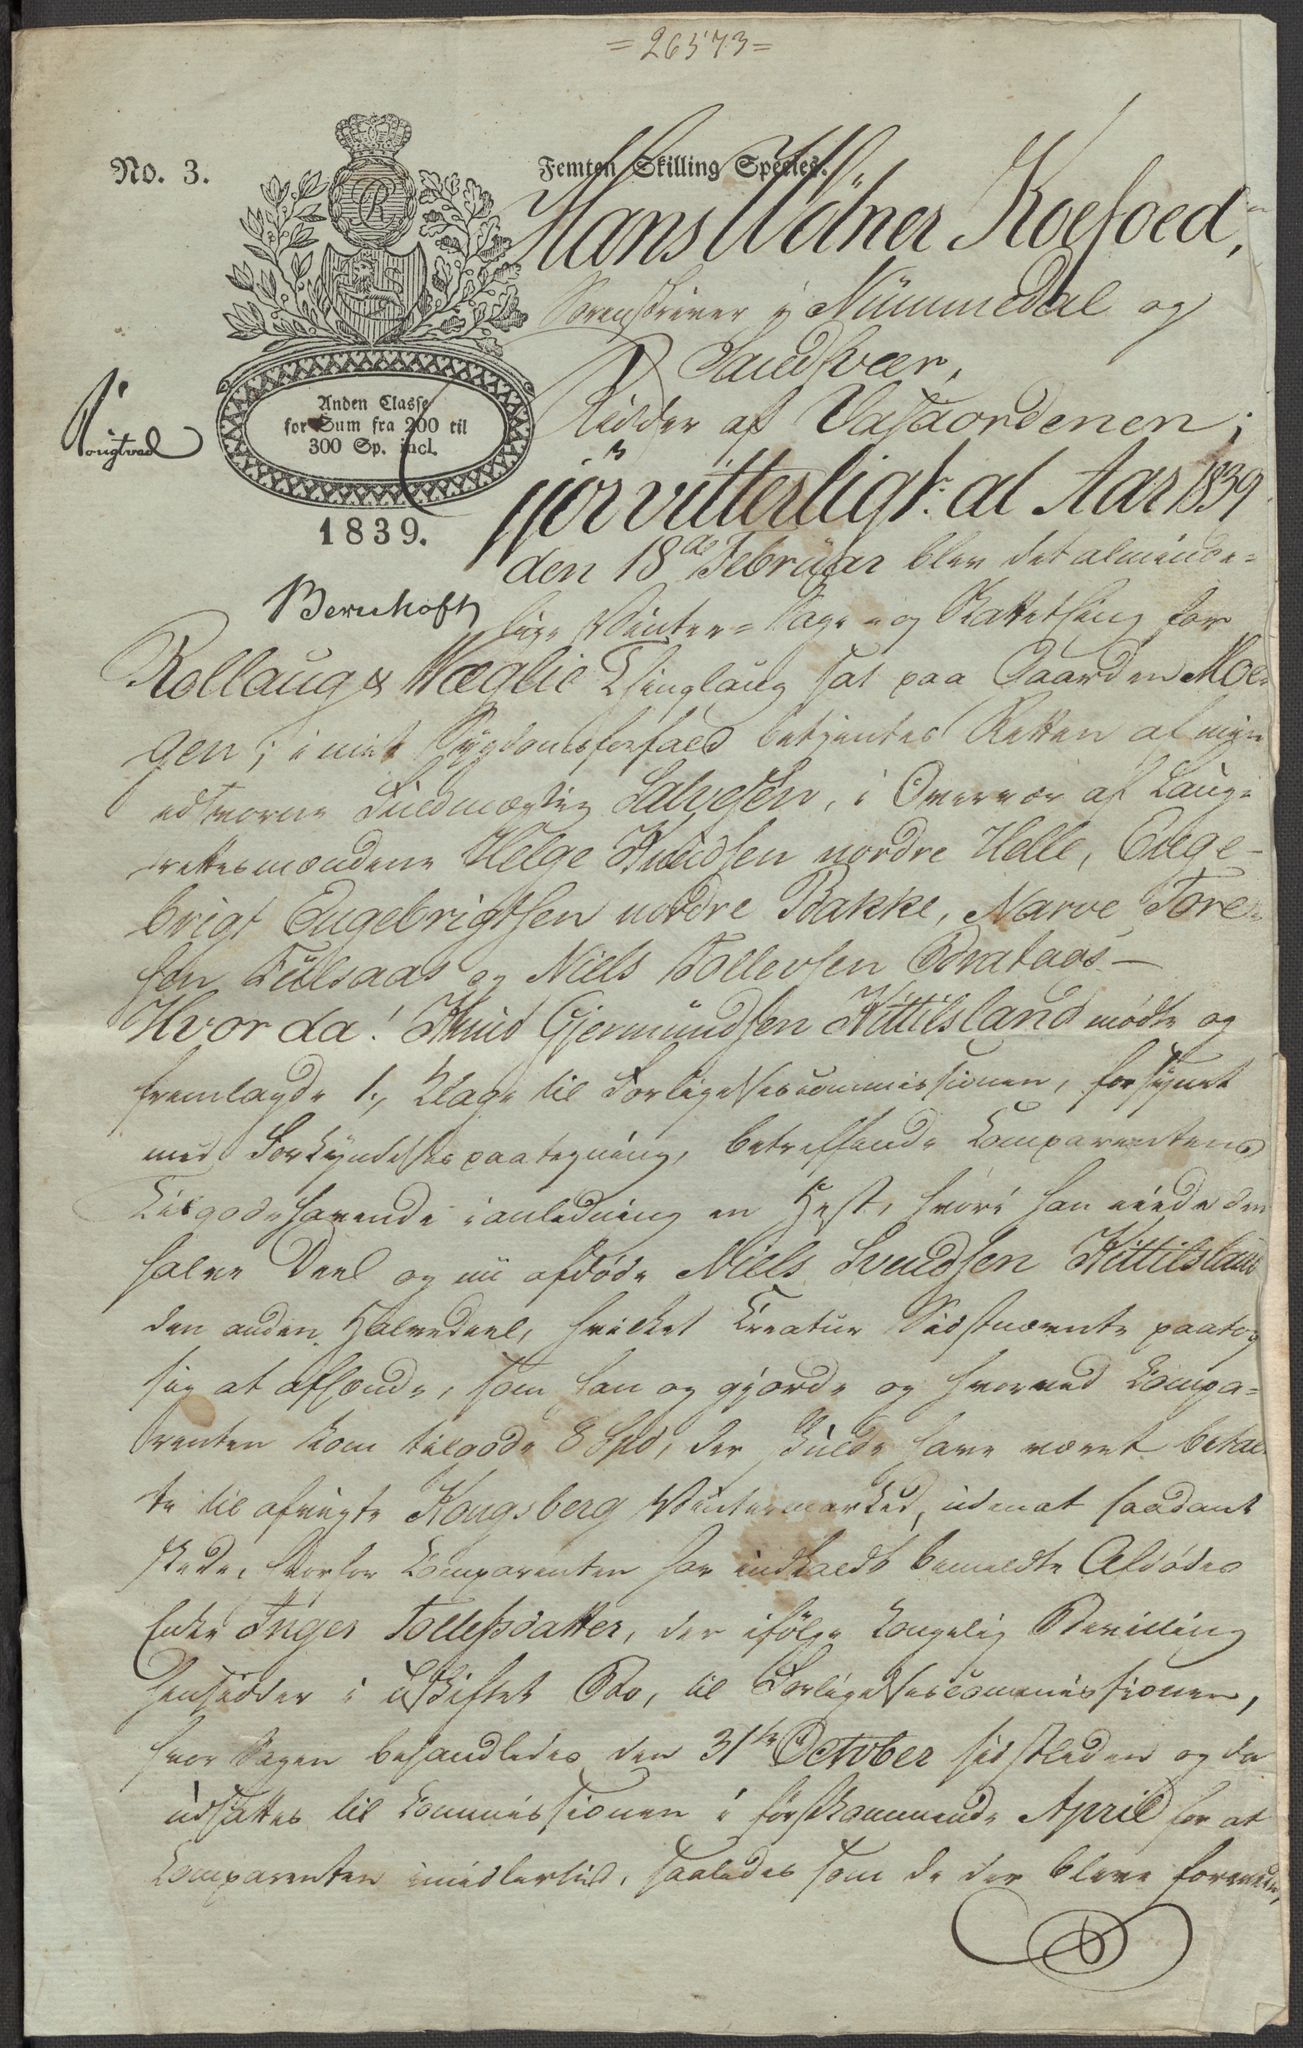 =26573=
No. 3.
Femten Skilling Species.
R
Anden Classe
for Sum fra 200 til
300 Sp. incl.
1839.
Berchoft
Hans Wölner Koefoed,
Sorenskriver i Nummedal og
Sandsvær,
Ridder af Vasaordenen;
gjör vitterligt: at Aar 1839
den 18de Februar blev det alminde-
lige Vinter- Sage- og Skattething for
Rollaug & Væglie Thinglaug sat paa Gaarden Moe-
gen; i mit Sygdomsforfald betjentes Retten af min
edsvorne Fuldmægtig Salvesen, i Overvær af Laug-
rettesmændene Helge Knudsen nordre Helle, Enge-
brigt Engebrigtsen nordre Bakke, Narve Tore-
sen Fulsaas og Niels Tollevsen Brataas-
Hvor da! Knud Gjermundsen Kittilsland mødte og
fremlagde 1., Klage til Forligelsescommissionen, forsynet
med Forkyndelsespaategning, betreffende Comparentens
Tilgodehavende i anledning en Hest, hvori han eiede den
halve Deel og nu afdøde Niels Svendsen Kittilsland
den anden Halvedeel, hvilket Creatur Sidstnævnte paatog
sig at afhænde, som han og gjorde og hvorved Compa-
renten kom tilgode 8 Spd, der skulde have været betal-
te til afvigte Kongsberg Vintermarked, uden at saadant
skede, hvorfor Comparenten har indkaldt bemeldte Afdødes
Enke Inger Tollefsdatter, der ifölge kongelig Bevilling
hensidder i uskiftet Bo, til Forligelsescommissionen,
hvor Sagen behandledes den 31te October sidstleden og da
udsattes til Commissionen i førstkommende April for at
Comparenten imidlertid, saaledes som de der bleve forenede,